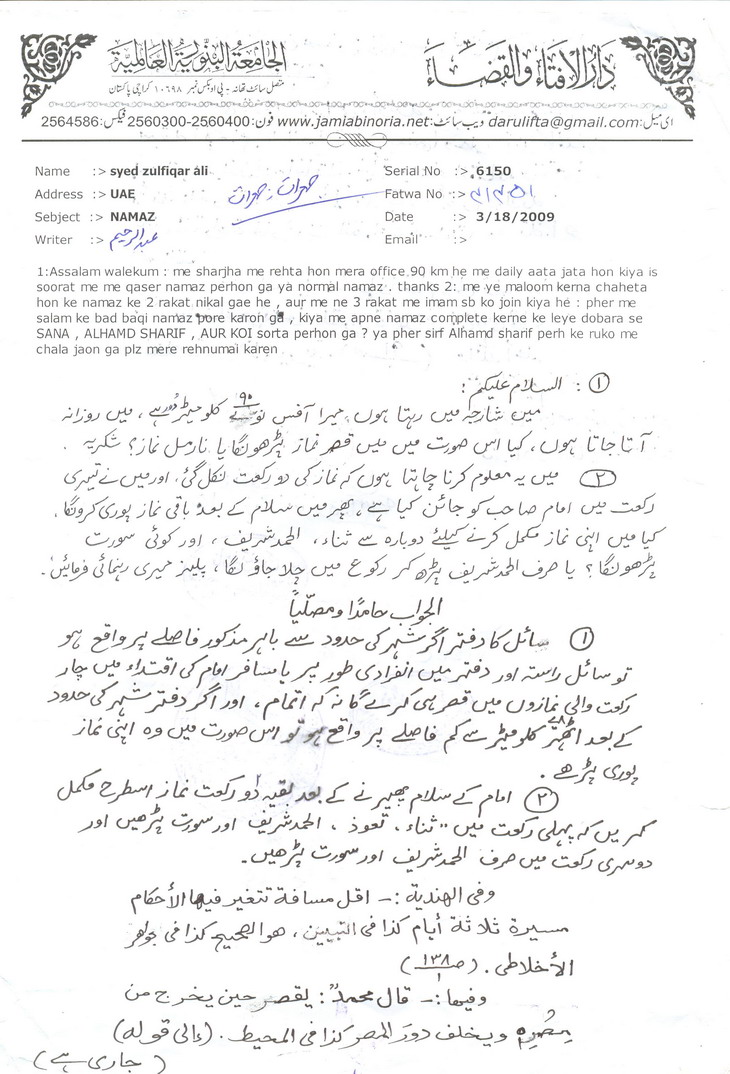 دار الافتاء والقضاء
الجامعة البنورية العالمية
متصل سائٹ تھانہ - پی او بکس نمبر ۱۰۶۹۸ کراچی پاکستان
ای میل: darulifta@gmail.com ویب سائٹ: www.jamiabinoria.net فون: 2560300-2560400 فیکس: 2564586
Name :> syed zulfiqar ali Serial No :> 6150
Address :> UAE Fatwa No :>
Sebject :> NAMAZ Date :> 3/18/2009
Writer :> عبدالرحیم Email :>
1:Assalam walekum : me sharjha me rehta hon mera office 90 km he me daily aata jata hon kiya is
soorat me me qaser namaz perhon ga ya normal namaz . thanks 2: me ye maloom kerna chaheta
hon ke namaz ke 2 rakat nikal gae he , aur me ne 3 rakat me imam sb ko join kiya he : pher me
salam ke bad baqi namaz pore karon ga , kiya me apne namaz complete kerne ke leye dobara se
SANA , ALHAMD SHARIF , AUR KOI sorta perhon ga ? ya pher sirf Alhamd sharif perh ke ruko me
chala jaon ga plz mere rehnumai karen
① : السلام علیکم :
میں شارجہ میں رہتا ہوں، میرا آفس نوے ۹۰ کلومیٹر دور ہے، میں روزانہ
آتا جاتا ہوں، کیا اس صورت میں میں قصر نماز پڑھونگا یا نارمل نماز؟ شکریہ .
② میں یہ معلوم کرنا چاہتا ہوں کہ نماز کی دو رکعت نکل گئی، اور میں نے تیسری
رکعت میں امام صاحب کو جائن کیا ہے، پھر میں سلام کے بعد باقی نماز پوری کرونگا،
کیا میں اپنی نماز مکمل کرنے کیلئے دوبارہ سے ثناء، الحمد شریف، اور کوئی سورت
پڑھونگا؟ یا صرف الحمد شریف پڑھ کر رکوع میں چلا جاؤنگا، پلیز میری رہنمائی فرمائیں۔
الجواب حامدًا ومصلّیاً
① سائل کا دفتر اگر شہر کی حدود سے باہر مذکور فاصلے پر واقع ہو
تو سائل راستہ اور دفتر میں انفرادی طور پر یا مسافر امام کی اقتداء میں چار
رکعت والی نمازوں میں قصر ہی کرے گا نہ کہ اتمام، اور اگر دفتر شہر کی حدود
کے بعد اٹھتر ۷۸ کلومیٹر سے کم فاصلے پر واقع ہو تو اس صورت میں وہ اپنی نماز
پوری پڑھے .
② امام کے سلام پھیرنے کے بعد بقیہ دو رکعت نماز اسطرح مکمل
کریں کہ پہلی رکعت میں " ثناء، تعوذ، الحمد شریف اور سورت پڑھیں اور
دوسری رکعت میں صرف الحمد شریف اور سورت پڑھیں۔
وفی الهندیة :- اقل مسافة تتغیر فیها الأحکام
مسیرة ثلاثة أیام کذا فی التبیین، هو الصحیح کذا فی جواهر
الأخلاطی . (ص ۱۳۸/۱)
وفیها :- قال محمدؒ : یقصر حین یخرج من
مصره ویخلف دور المصر کذا فی المحیط . (إلی قوله)
( جاری ہے )